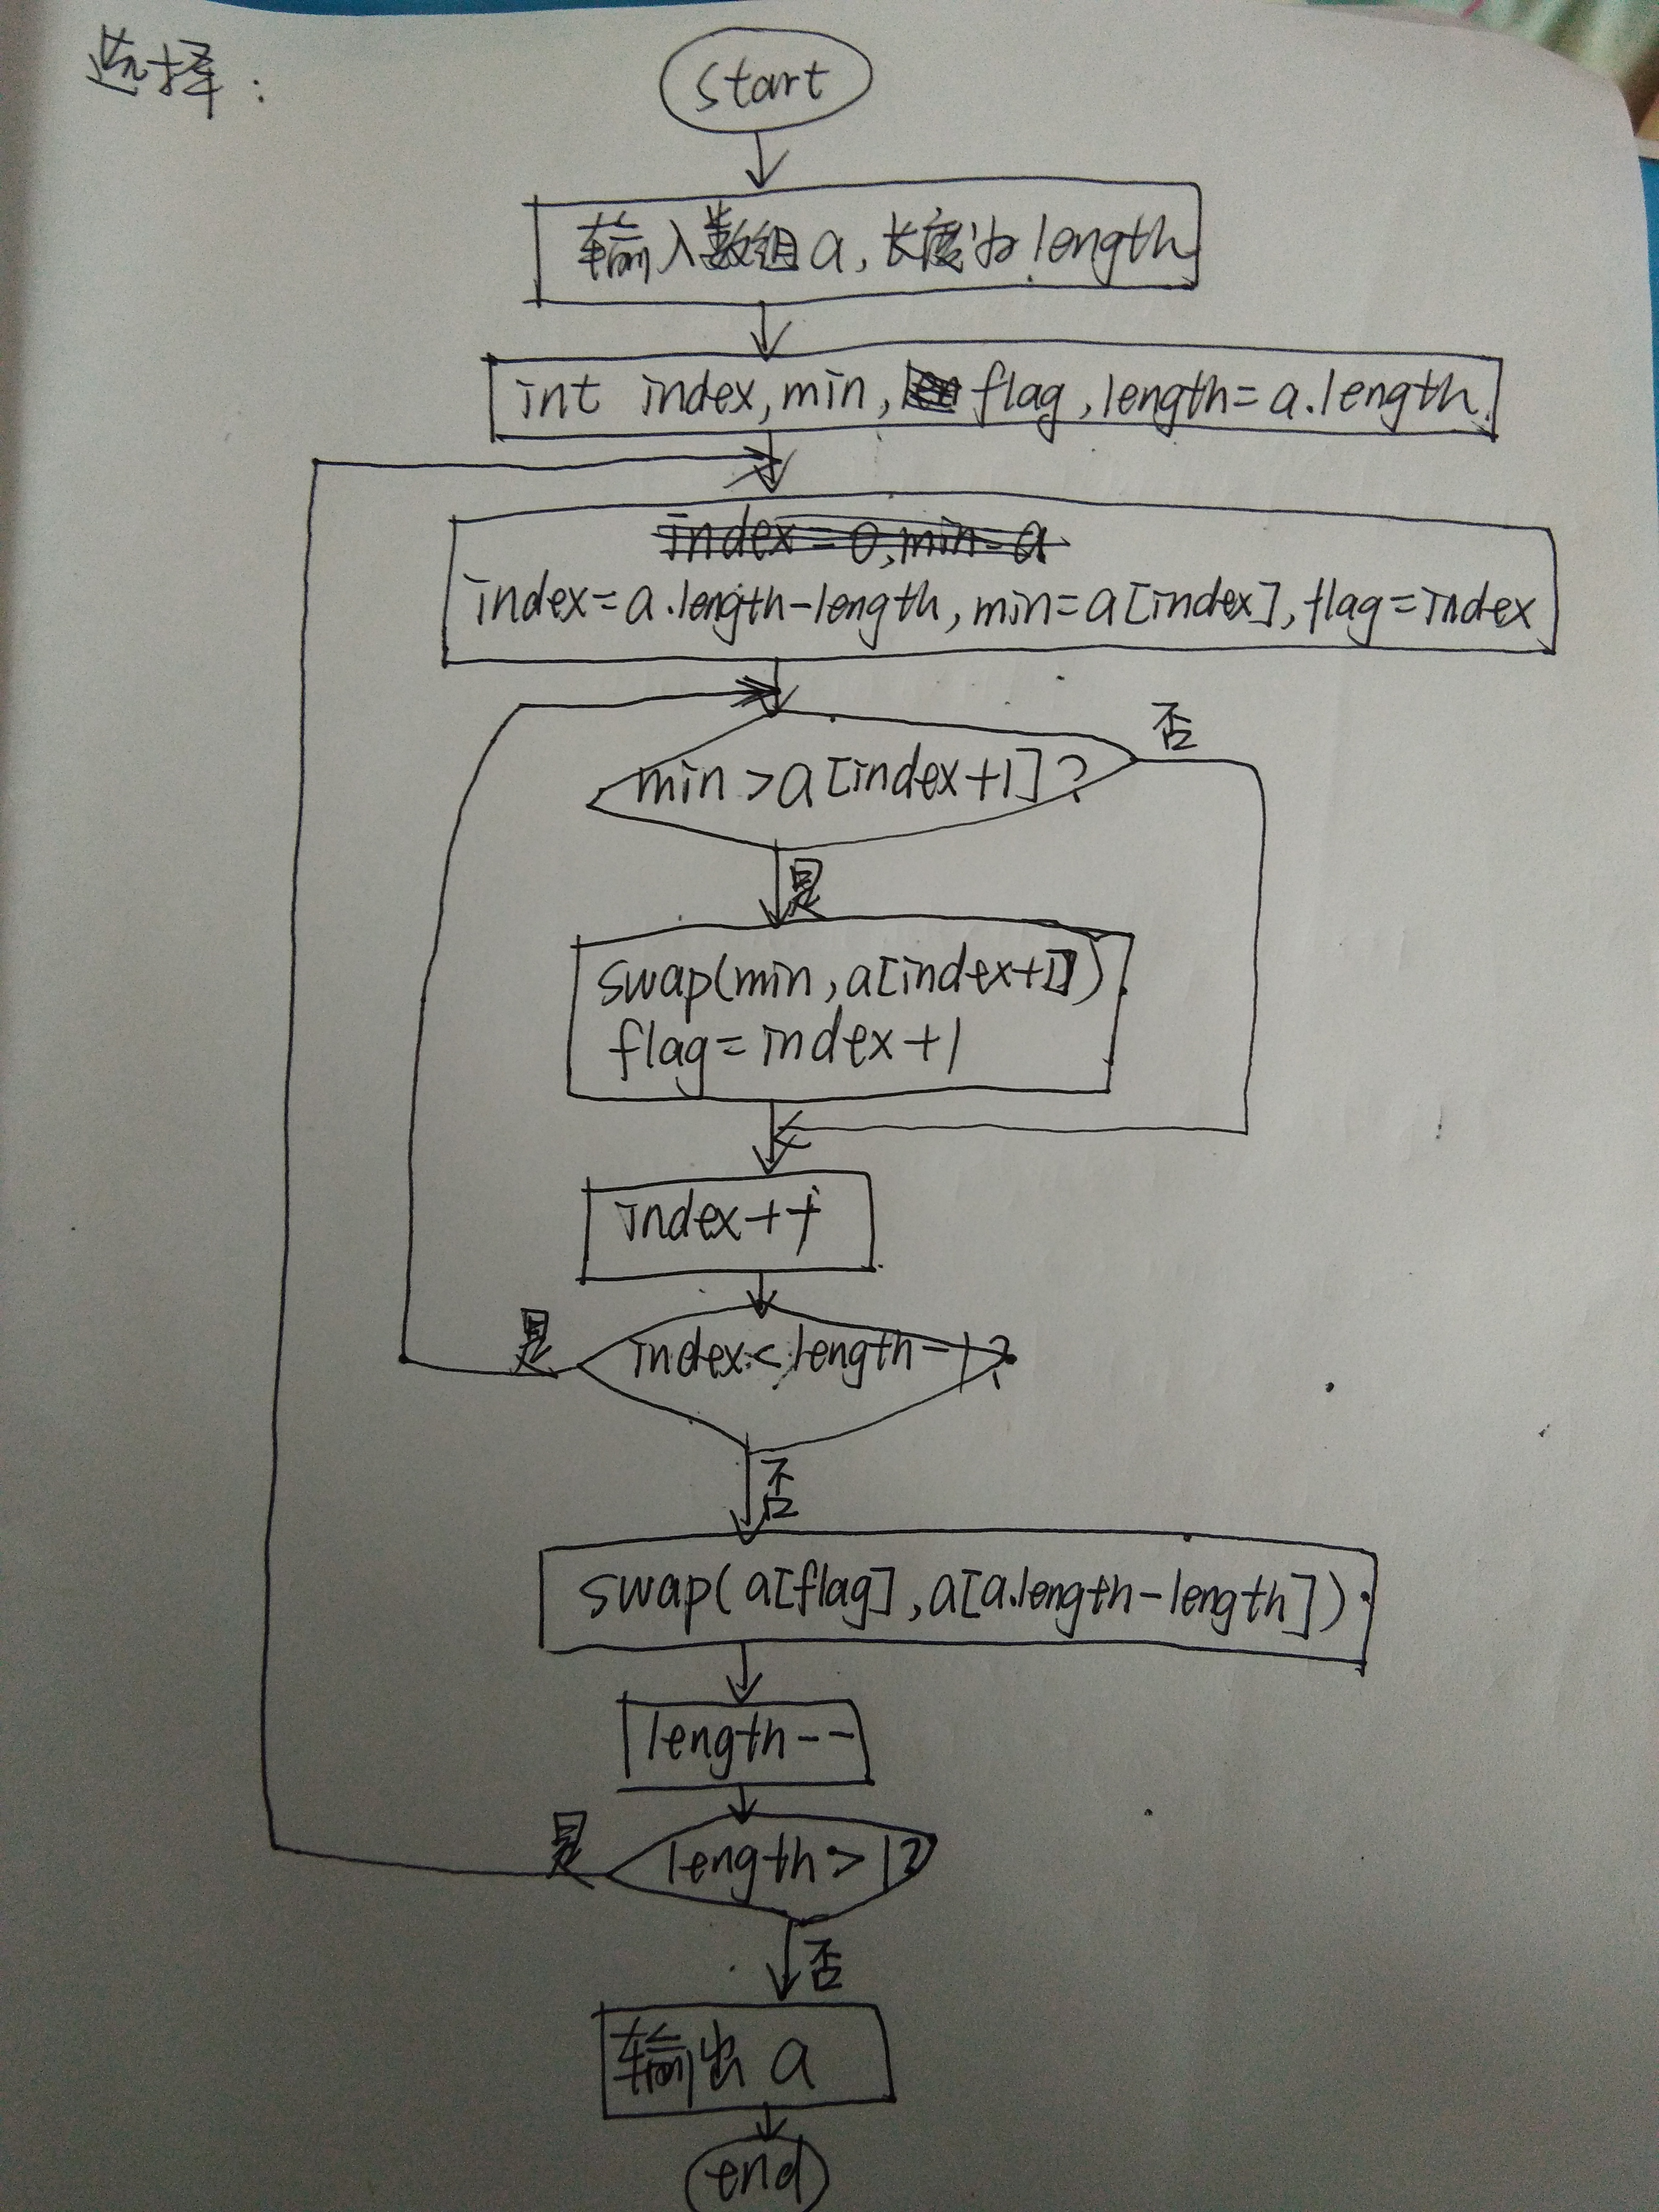 选择:
start
输入数组a,长度为length
int index,min,flag,length=a.length
index=0,min=a
index=a.length-length,min=a[index],flag=index
否
min>a[index+1]?
是
swap(min,a[index+1])
flag=index+1
index++
是
index<length-1?
否
swap(a[flag],a[a.length-length])
length--
是
length>1?
否
输出a
end